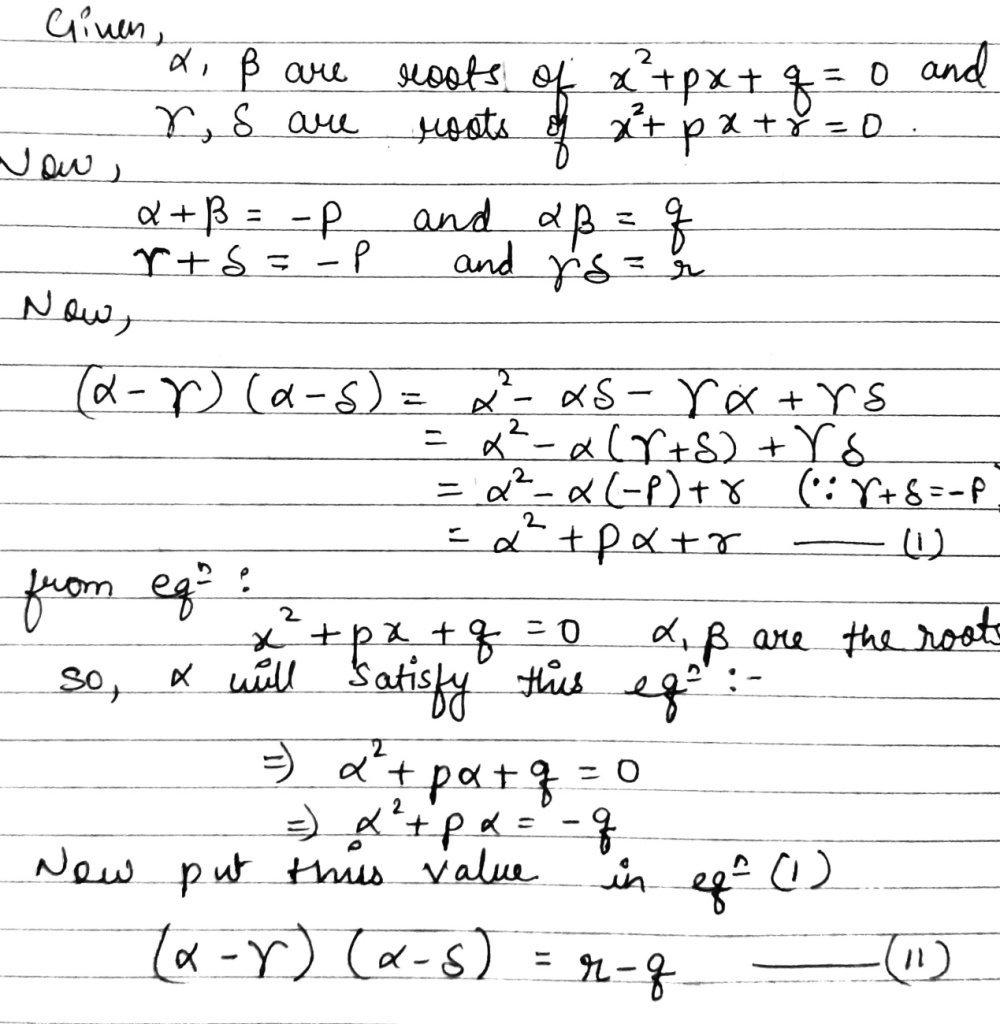 Given,
α, β are roots of x²+px+q = 0 and
γ, δ are roots of x²+px+r = 0.
Now,
α+β = -P and αβ = q
γ+δ = -P and γδ = r
Now,
(α-γ) (α-δ) = α²- αδ - γα + γδ
= α²-α(γ+δ)+γδ
= α²-α(-P)+r (∵ γ+δ=-P
= α²+pα+r —— (1)
from eqⁿ :
x²+px+q =0 α, β are the roots
so, α will satisfy this eqⁿ :-
⇒ α²+pα+q = 0
⇒ α²+pα = -q
Now put this value in eqⁿ (1)
(α-γ) (α-δ) = r-q ——(11)